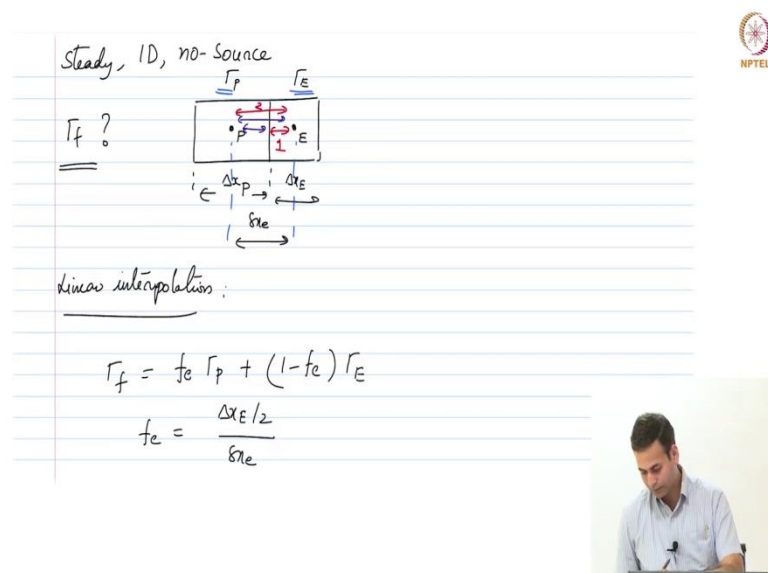 Steady, 1D, no-source
Γ_P Γ_E
Γ_f ?
3
P E
1
Δx_P Δx_E
δx_e
Linear interpolation :
Γ_f = f_e Γ_P + (1-f_e) Γ_E
f_e = Δx_E/2
δx_e
NPTEL